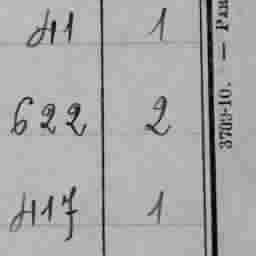 41 1
622 2
417 1
3703-10. — PAR